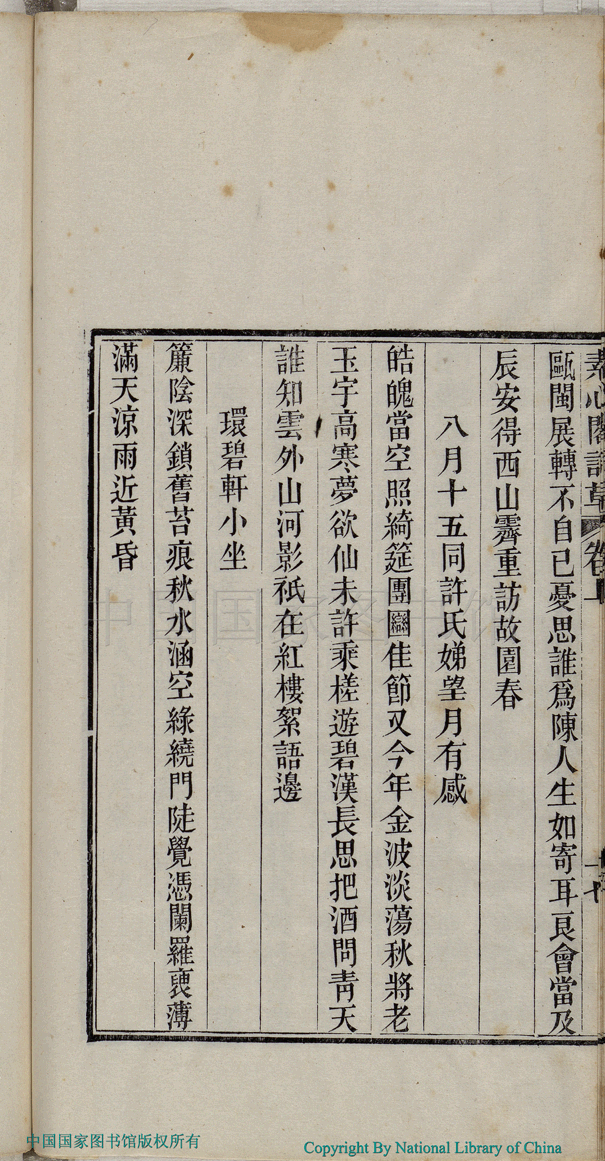 甌閩展轉不自已憂思誰爲陳人生如寄耳良會當及
辰安得西山霽重訪故園春
八月十五同許氏娣望月有感
皓魄當空照綺筵團圞佳節又今年金波淡蕩秋將老
玉宇高寒夢欲仙未許乘槎遊碧漢長思把酒問靑天
誰知雲外山河影祇在紅樓絮語邊
環碧軒小坐
簾陰深鎖舊苔痕秋水涵空綠繞門陡覺憑闌羅裒薄
滿天涼雨近黃昏
中国国家图书馆
中国国家图书馆版权所有
Copyright By National Library of China